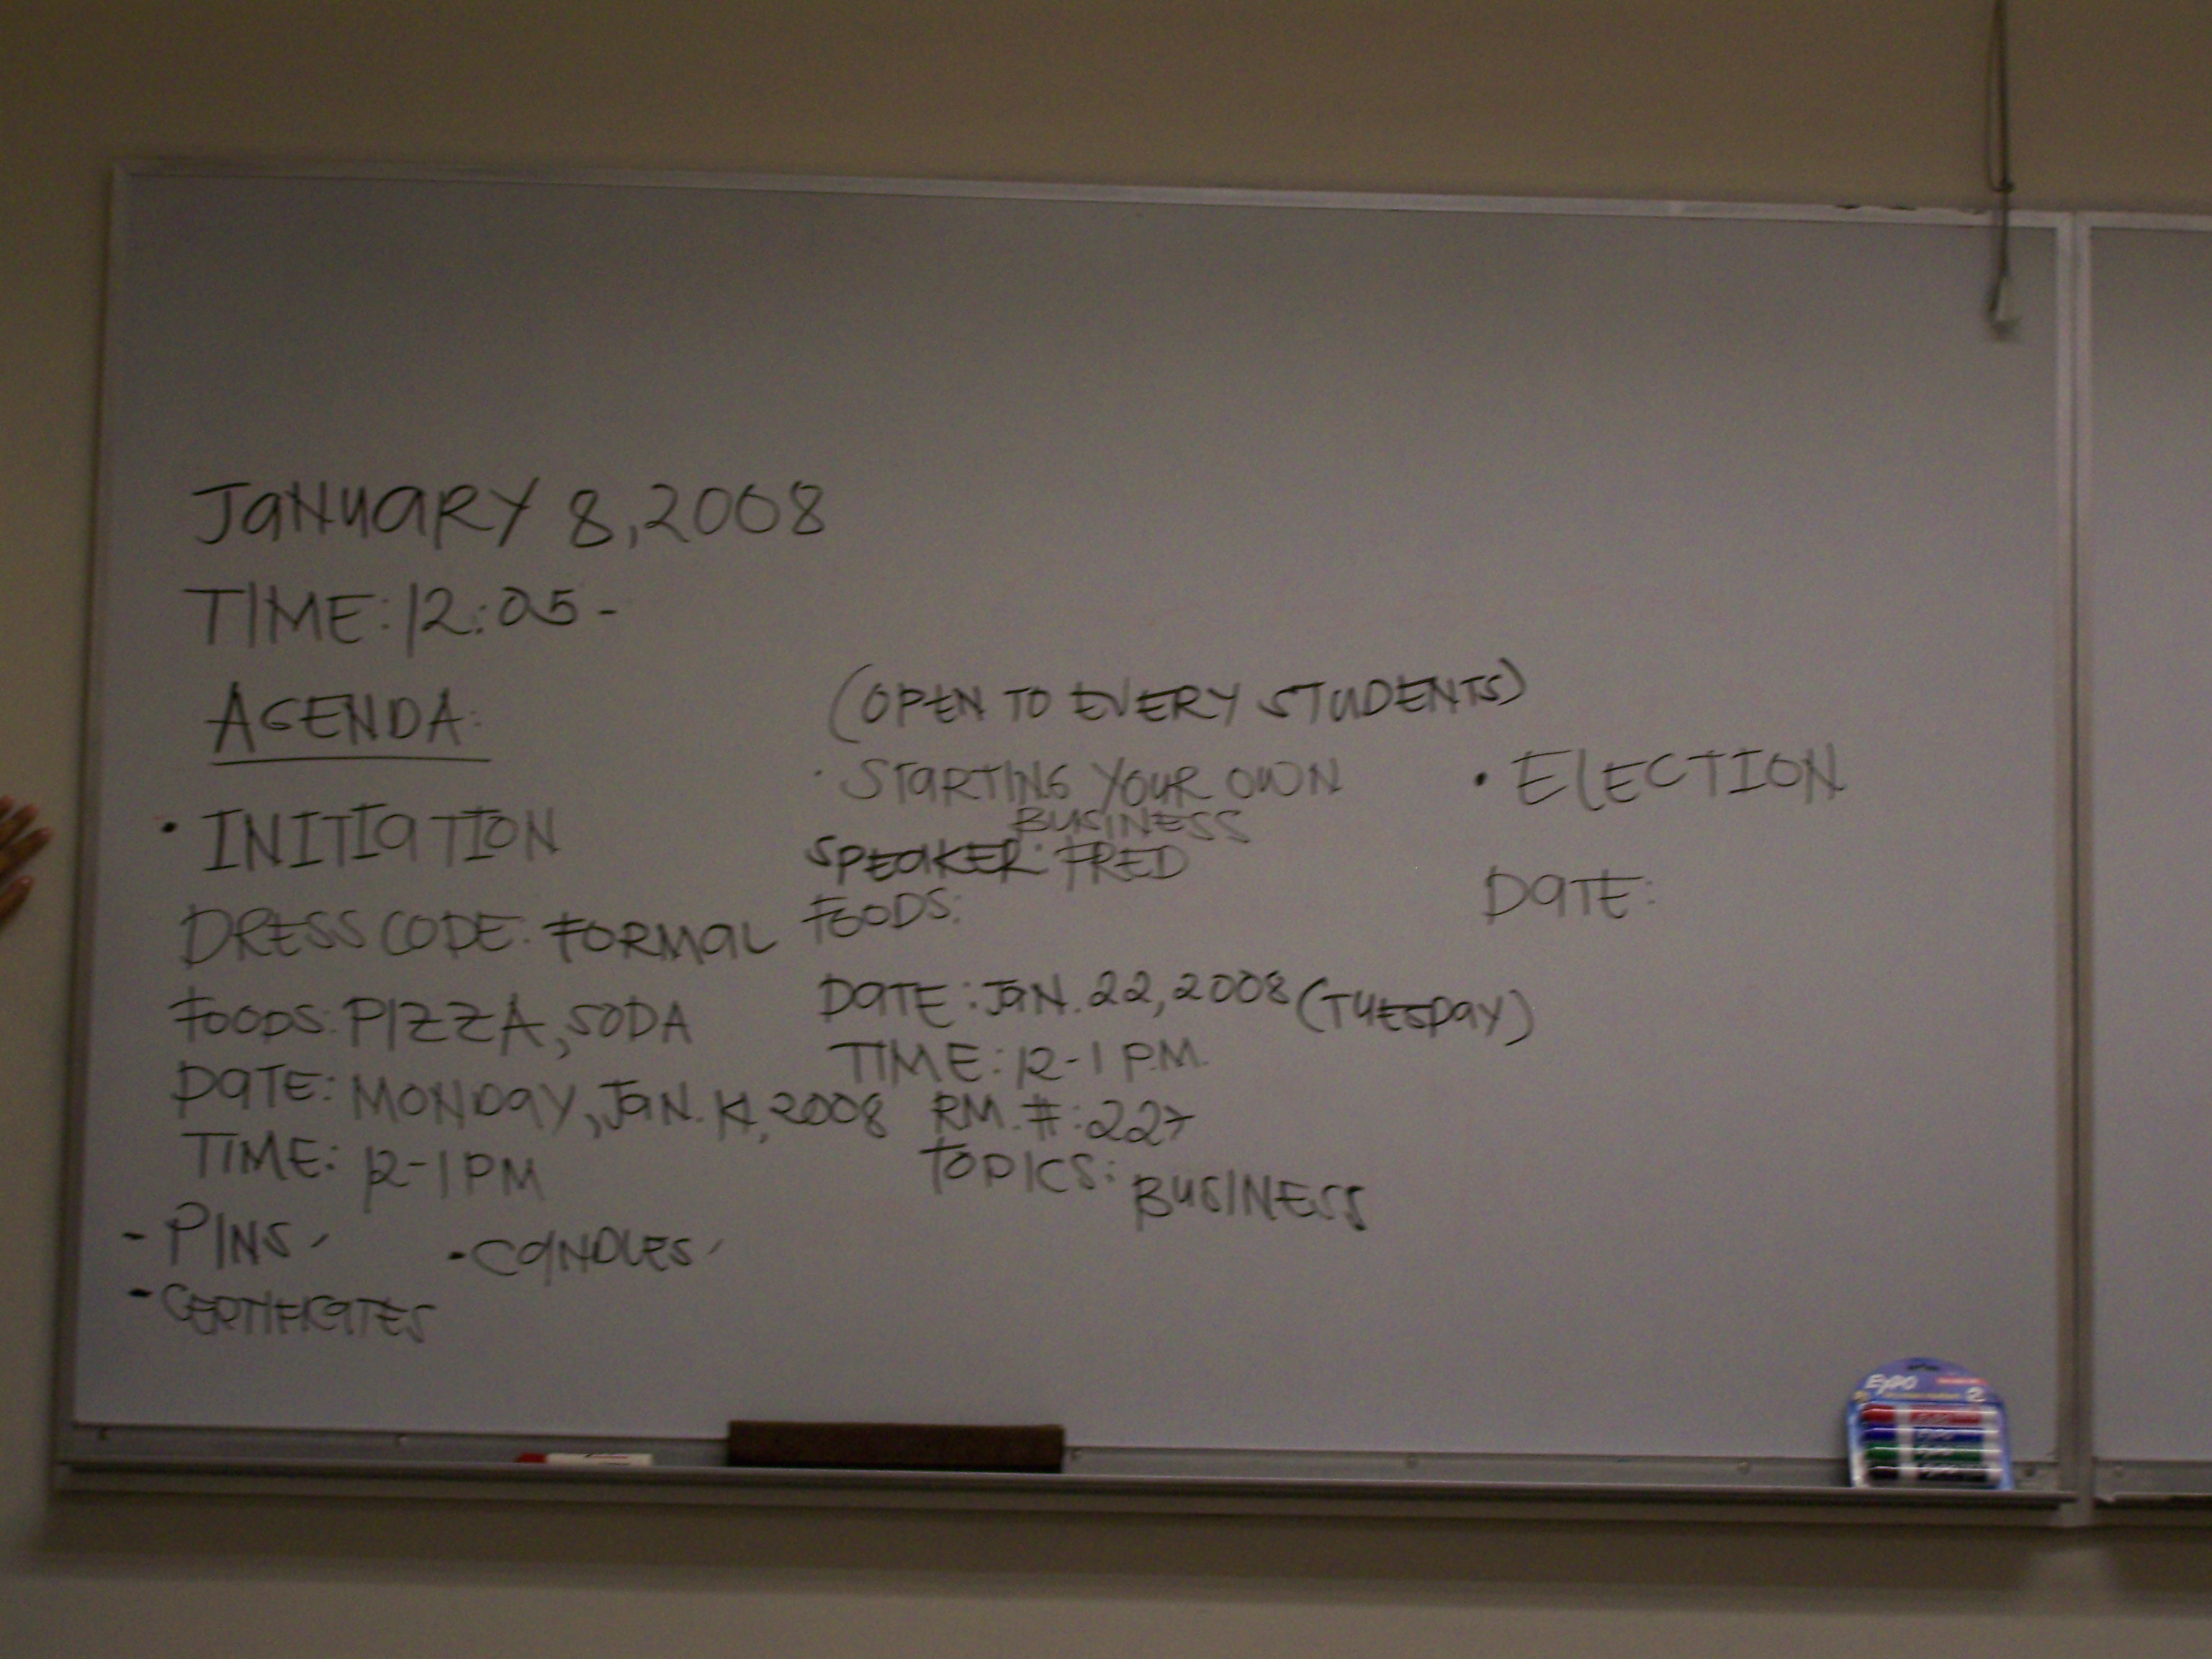 JANUARY 8, 2008
TIME: 12:05 -
AGENDA:
• INITIATION
DRESS CODE: FORMAL
FOODS: PIZZA, SODA
DATE: MONDAY, JAN. 14, 2008
TIME: 12-1 PM
- PINS
- CANDLES
- CERTIFICATES
(OPEN TO EVERY STUDENTS)
· STARTING YOUR OWN
BUSINESS
SPEAKER: FRED
FOODS:
DATE: JAN. 22, 2008 (TUESDAY)
TIME: 12-1 P.M.
RM. #: 227
TOPICS: BUSINESS
• ELECTION
DATE:
EXPO